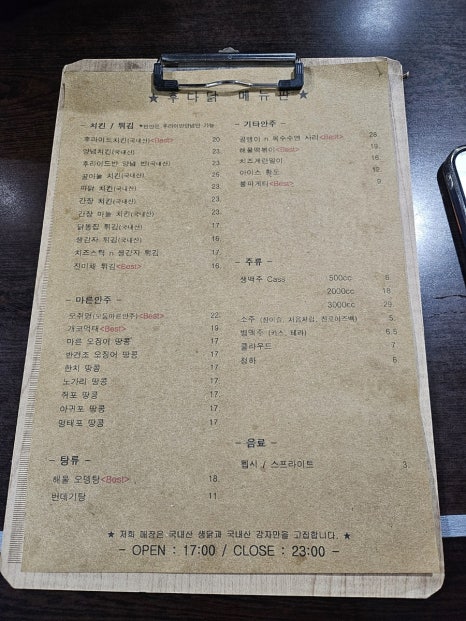 ★ 후다닭 메뉴판 ★
- 치킨 / 튀김 *반반은 후라이반양념만 가능
후라이드치킨(국내산)<Best> 20
양념치킨(국내산) 23
후라이드반 양념 반(국내산) 23
꿀마늘 치킨(국내산) 25
파닭 치킨(국내산) 23
간장 치킨(국내산) 23
간장 마늘 치킨(국내산) 23
닭똥집 튀김(국내산) 17
생감자 튀김(국내산) 16
치즈스틱 n 생감자 튀김 17
진미채 튀김<Best> 16
- 마른안주 -
오쥐먹(모듬마른안주)<Best> 22
개코먹태<Best> 19
마른 오징어 땅콩 17
반건조 오징어 땅콩 17
한치 땅콩 17
노가리 땅콩 17
쥐포 땅콩 17
아귀포 땅콩 17
명태포 땅콩 17
- 탕류 -
해물 오뎅탕<Best> 18
번데기탕 11
- 기타안주 -
골뱅이 n 옥수수면 사리<Best> 26
해물떡볶이<Best> 19
치즈계란말이 16
아이스 황도 12
불짜게티<Best> 9
- 주류 -
생맥주 Cass 500cc 6
2000cc 18
3000cc 29
소주 (참이슬, 처음처럼, 진로이즈백) 5
병맥주 (카스, 테라) 6.5
클라우드 7
청하 6
- 음료 -
펩시 / 스프라이트 3
★ 저희 매장은 국내산 생닭과 국내산 감자만을 고집합니다. ★
- OPEN : 17:00 / CLOSE : 23:00 -